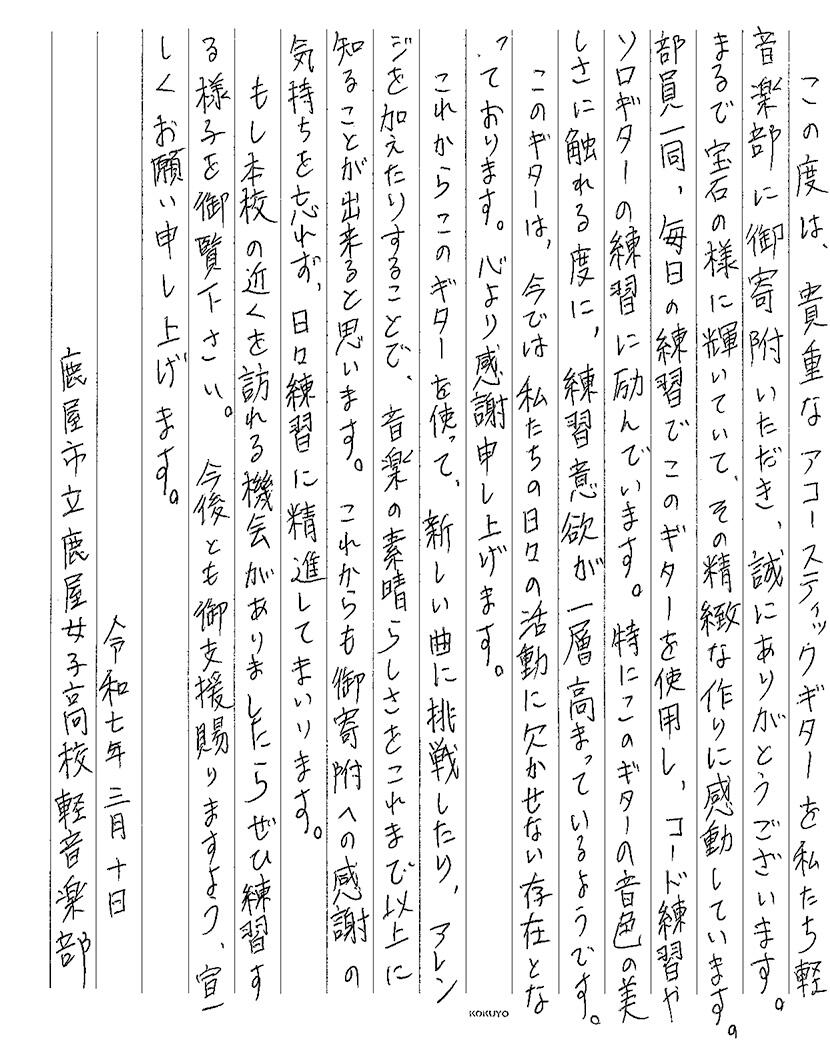 この度は、貴重なアコースティックギターを私たち軽
音楽部に御寄附いただき、誠にありがとうございます。
まるで宝石の様に輝いていて、その精緻な作りに感動しています。
部員一同、毎日の練習でこのギターを使用し、コード練習や
ソロギターの練習に励んでいます。特にこのギターの音色の美
しさに触れる度に、練習意欲が一層高まっているようです。
このギターは、今では私たちの日々の活動に欠かせない存在とな
っております。心より感謝申し上げます。
これからこのギターを使って、新しい曲に挑戦したり、アレン
ジを加えたりすることで、音楽の素晴らしさをこれまで以上に
知ることが出来ると思います。これからも御寄附への感謝の
気持ちを忘れず、日々練習に精進してまいります。
もし本校の近くを訪れる機会がありましたらぜひ練習す
る様子を御覧下さい。今後とも御支援賜りますよう、宜
しくお願い申し上げます。
令和七年三月十日
鹿屋市立鹿屋女子高校軽音楽部
KOKUYO